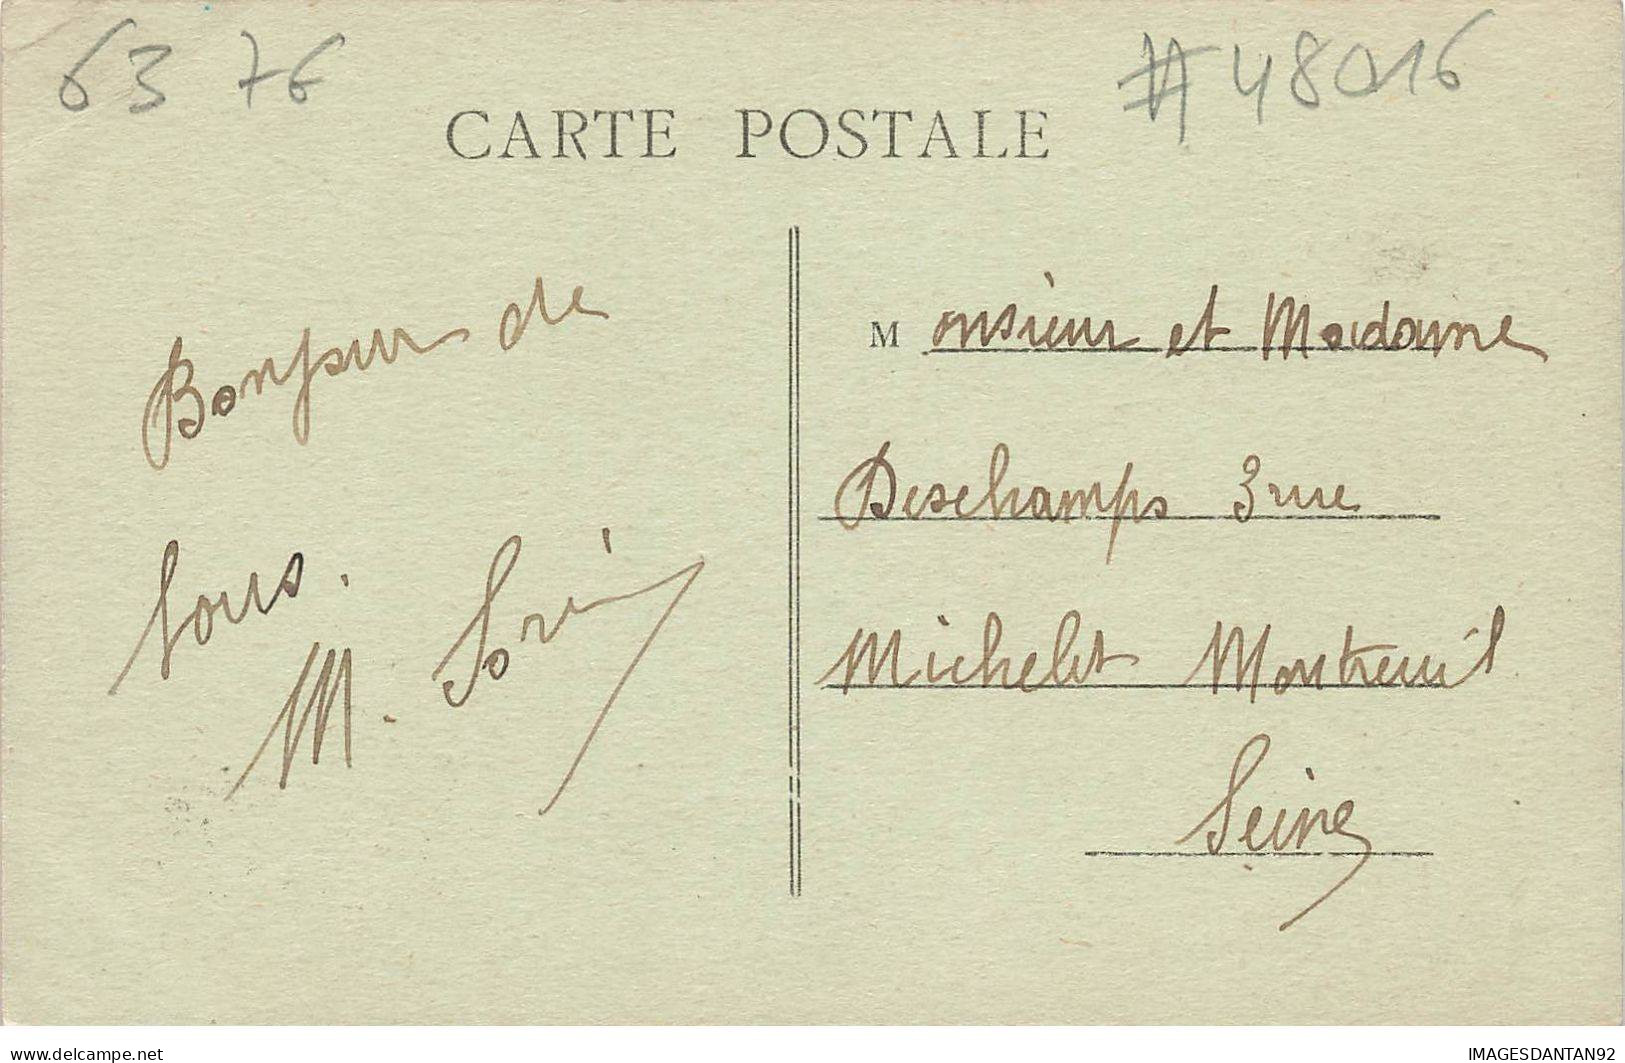 63 76
#48016
CARTE POSTALE
Bonjour de
tous.
M. Sori
Monsieur et Madame
Deschamps 3 rue
Michelet Montreuil
Seine
www.delcampe.net
IMAGESDANTAN92